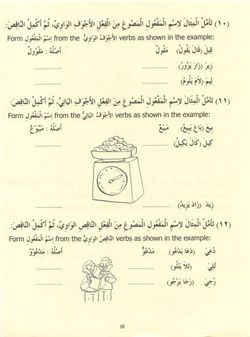 (١٠) تَأَمَّلِ الْمِثَالَ لِاِسْمِ الْمَفْعُولِ الْمَصُوغِ مِنَ الْفِعْلِ الْأَجْوَفِ الْوَاوِيِّ، ثُمَّ أَكْمِلِ النَّاقِصَ:
Form اِسْمُ الْمَفْعُولِ from the الْأَجْوَفُ الْوَاوِيُّ verbs as shown in the example:
قِيلَ (قَالَ يَقُولُ) مَقُولٌ أَصْلُهُ : مَقْوُولٌ
زِيرَ (زَارَ يَزُورُ)
لِيمَ (لَامَ يَلُومُ)
(١١) تَأَمَّلِ الْمِثَالَ لِاِسْمِ الْمَفْعُولِ الْمَصُوغِ مِنَ الْفِعْلِ الْأَجْوَفِ الْيَائِيِّ، ثُمَّ أَكْمِلِ النَّاقِصَ:
Form اِسْمُ الْمَفْعُولِ from the الْأَجْوَفُ الْيَائِيُّ verbs as shown in the example:
بِيعَ (بَاعَ يَبِيعُ) مَبِيعٌ أَصْلُهُ : مَبْيُوعٌ
كِيلَ (كَالَ يَكِيلُ)
زِيدَ (زَادَ يَزِيدُ)
(١٢) تَأَمَّلِ الْمِثَالَ لِاِسْمِ الْمَفْعُولِ الْمَصُوغِ مِنَ الْفِعْلِ النَّاقِصِ الْوَاوِيِّ، ثُمَّ أَكْمِلِ النَّاقِصَ:
Form اِسْمُ الْمَفْعُولِ from the النَّاقِصُ الْوَاوِيُّ verbs as shown in the example:
دُعِيَ (دَعَا يَدْعُو) مَدْعُوٌّ أَصْلُهُ : مَدْعُووٌ
تُلِيَ (تَلَا يَتْلُو)
رُجِيَ (رَجَا يَرْجُو)